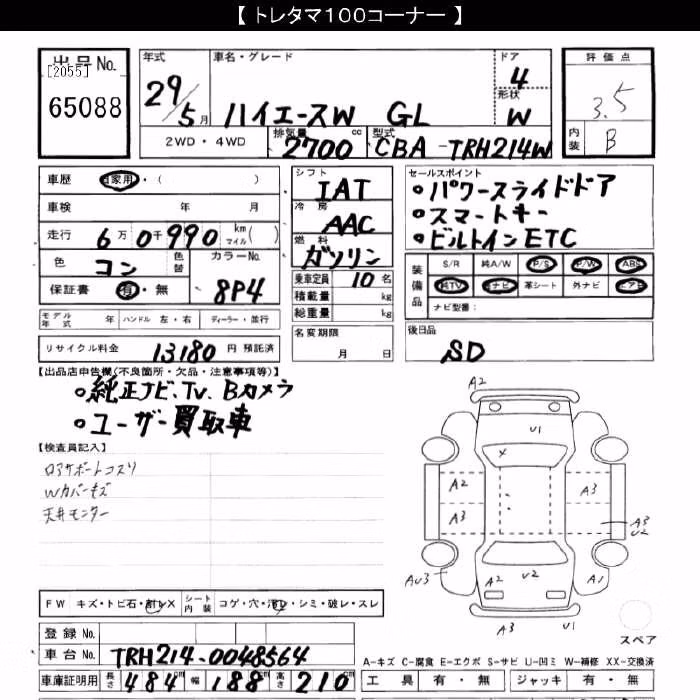 【 トレタマ100コーナー 】
出品No.
[2055]
65088
年式
29/5月
車名・グレード
ハイエースW GL
ドア
4
形状
W
評価点
3.5
内装
B
2WD・4WD
排気量
2700cc
型式
CBA-TRH214W
車歴 自家用・( )
車検 年 月
走行 6万0千990 km マイル( )
色 コン 色替 カラーNo.
保証書 有・無 8P4
モデル年式 年 ハンドル 左・右 ディーラー・並行
リサイクル料金 13180円 預託済
シフト
IAT
冷房
AAC
燃料
ガソリン
乗車定員 10名
積載量 kg
総重量 kg
名変期限
月 日
セールスポイント
○パワースライドドア
○スマートキー
○ビルトインETC
装備品
S/R 純A/W P/S P/W ABS
純TV 純ナビ 革シート 外ナビ エアB
ナビ型番:
後日品
SD
【出品店申告欄(不良箇所・欠品・注意事項等)】
○純正ナビ、TV、Bカメラ
○ユーザー買取車
【検査員記入】
ロアサポートコスリ
Wカバーキズ
天井モニター
A2
U1
X
A2
A3
A3
A3
U2
AU3
A2
U2
A1
A3
U1
スペア
FW キズ・トビ石・割レX シート内装 コゲ・穴・汚レ・シミ・破レ・スレ
登録No.
車台No. TRH214-0048564
車庫証明用 長さ 484cm 幅 188cm 高さ 210cm
A-キズ C-腐食 E-エクボ S-サビ U-凹ミ W-補修 XX-交換済
工具 有・無 ジャッキ 有・無